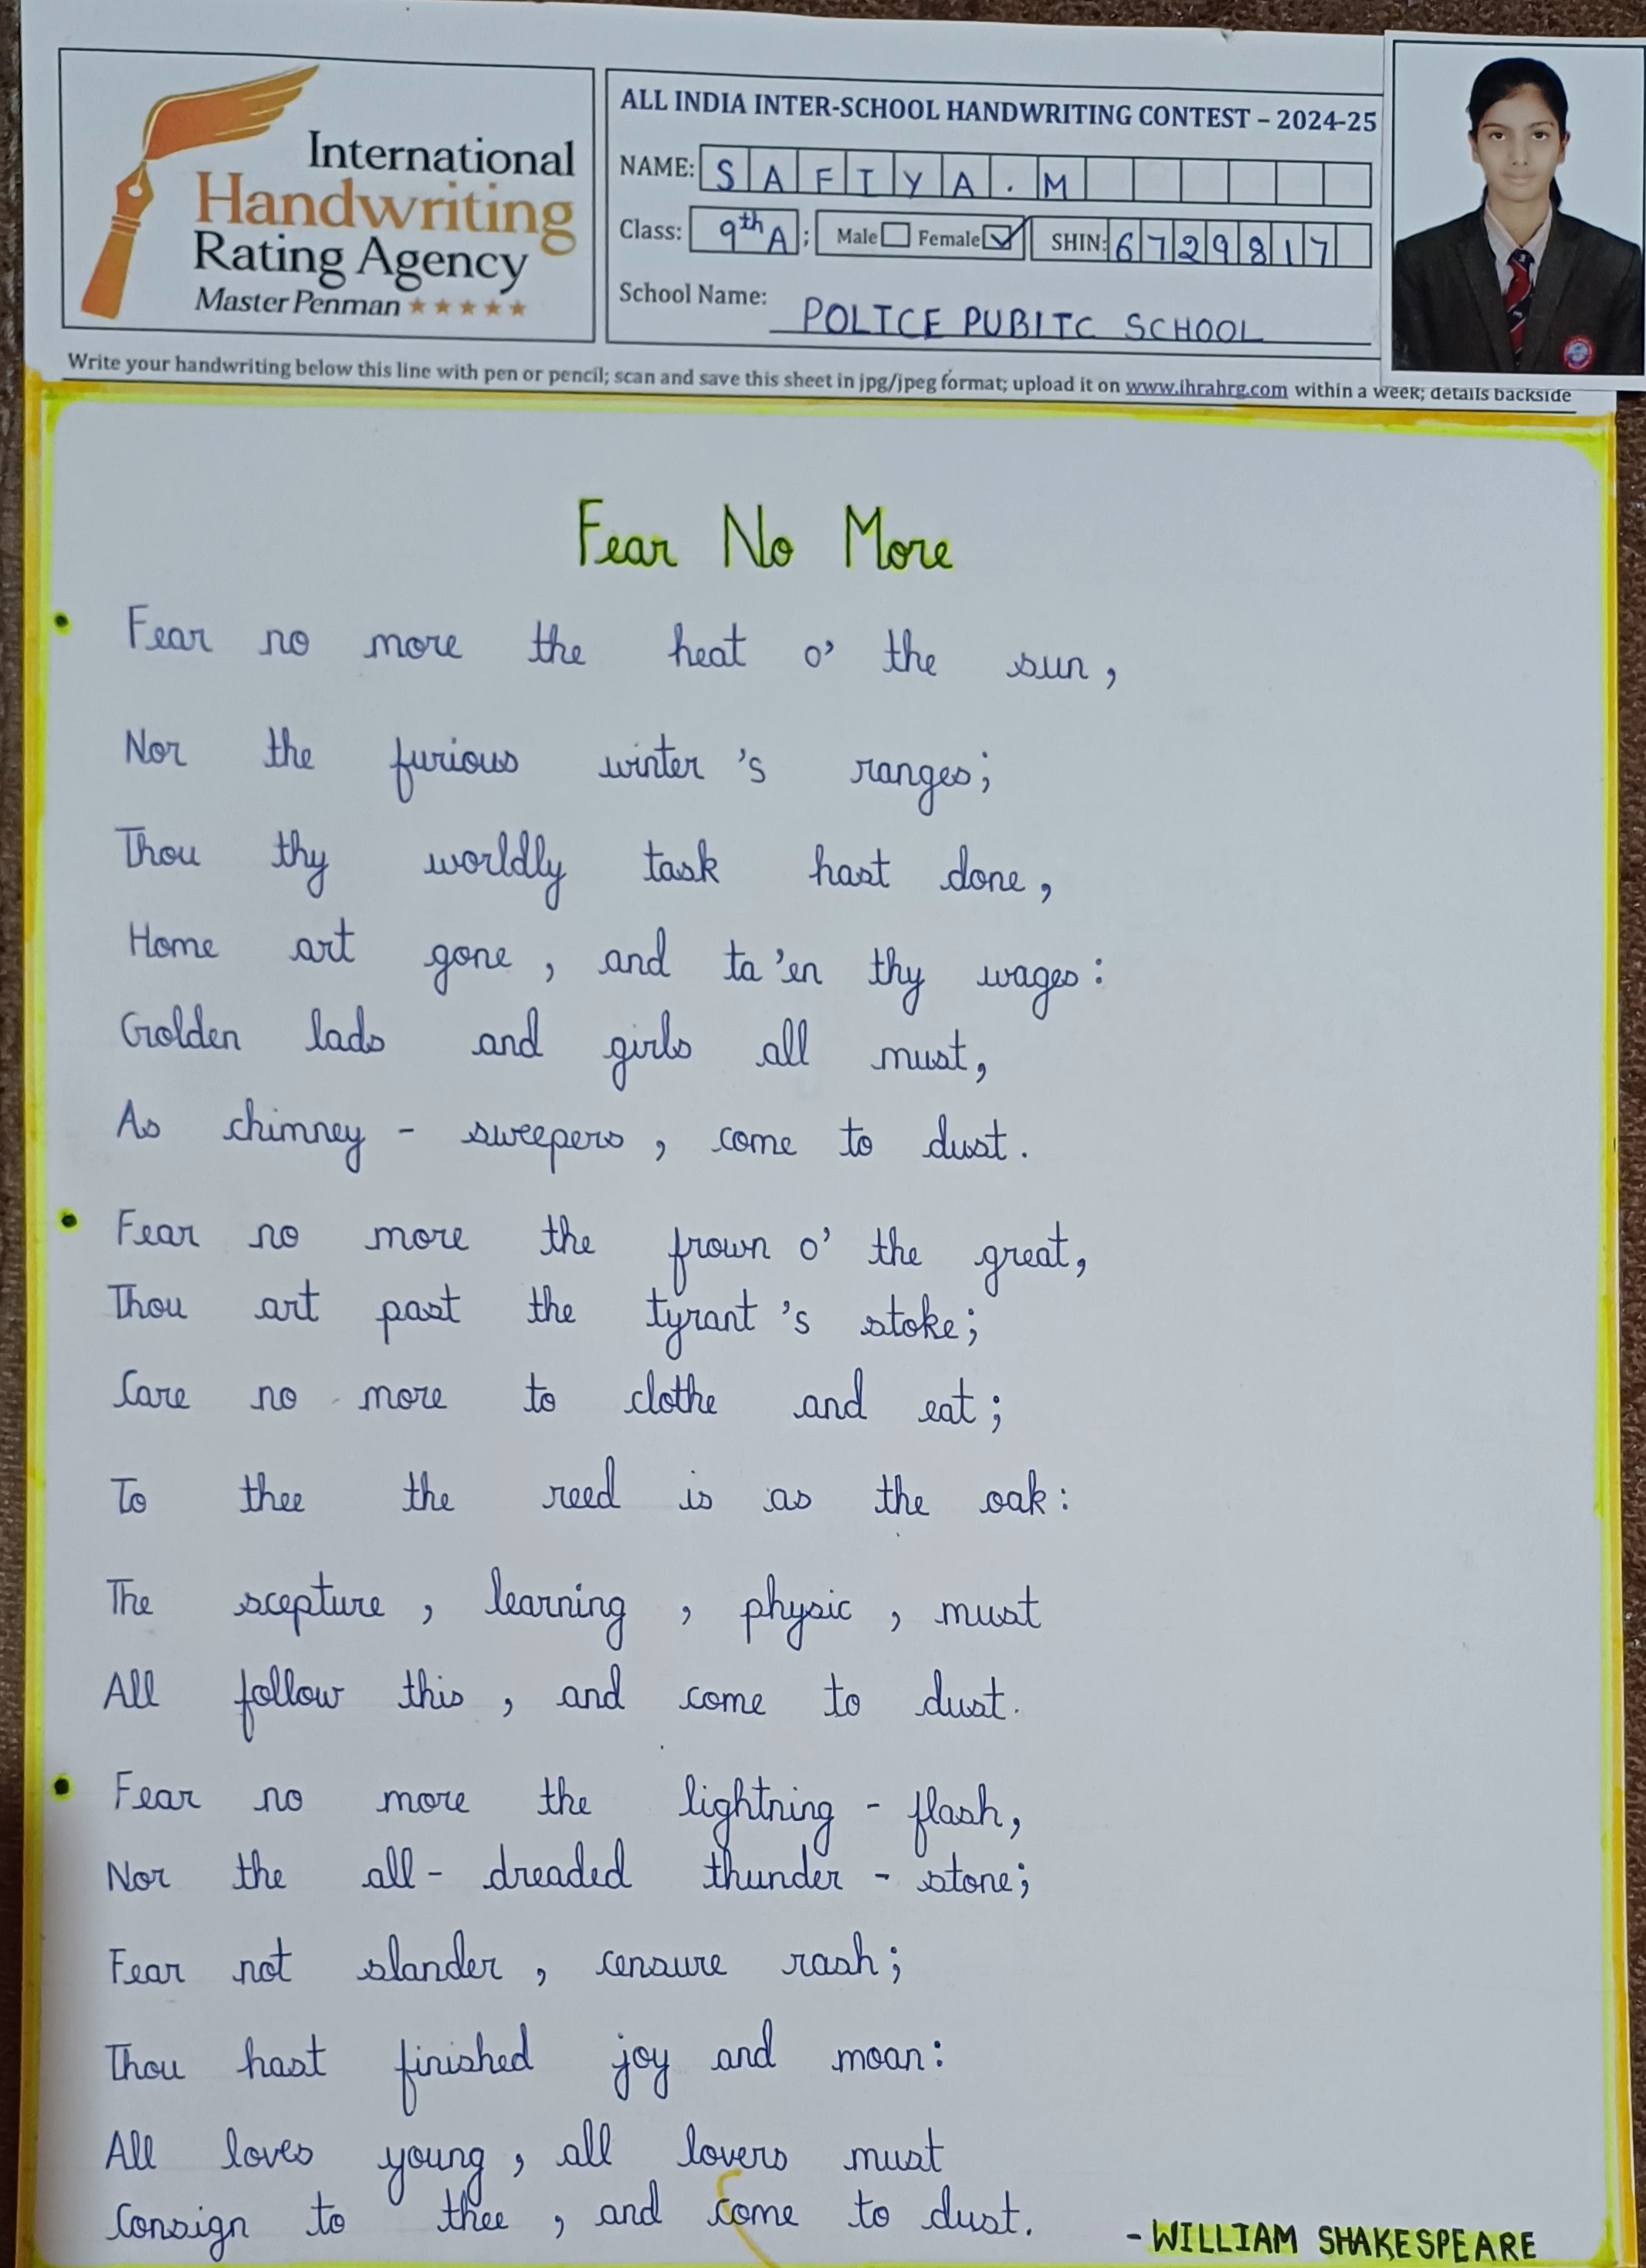 International
Handwriting
Rating Agency
Master Penman
ALL INDIA INTER-SCHOOL HANDWRITING CONTEST – 2024-25
NAME: SAFIYA.M
Class: 9th A ; Male Female SHIN: 6729817
School Name: POLICE PUBLIC SCHOOL
Write your handwriting below this line with pen or pencil; scan and save this sheet in jpg/jpeg format; upload it on www.ihrahrg.com within a week; details backside
Fear No More
• Fear no more the heat o' the sun,
Nor the furious winter's ranges;
Thou thy worldly task hast done,
Home art gone, and ta'en thy wages:
Golden lads and girls all must,
As chimney - sweepers, come to dust.
• Fear no more the frown o' the great,
Thou art past the tyrant's stoke;
Care no more to clothe and eat;
To thee the reed is as the oak:
The scepture, learning, physic, must
All follow this, and come to dust.
• Fear no more the lightning - flash,
Nor the all - dreaded thunder - stone;
Fear not slander, censure rash;
Thou hast finished joy and moan:
All loves young, all lovers must
Consign to thee, and come to dust.
- WILLIAM SHAKESPEARE